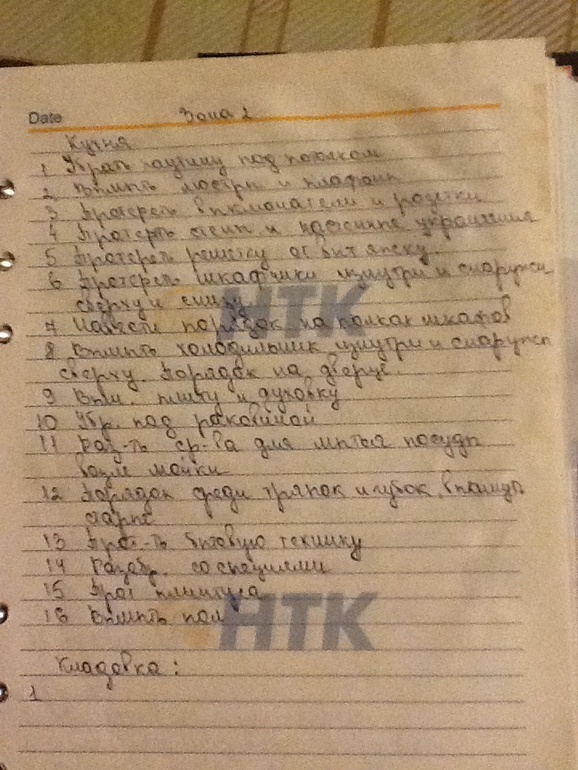 Date
Зона 2
Кухня
1 Убрать паутину под потолком
2 Вымыть люстры и плафоны
3 Протереть выключатели и розетки
4 Протереть стены и настенные украшения
5 Протереть решетку от вытяжки.
6 Протереть шкафчики изнутри и снаружи
сверху и снизу
НТК
7 Навести порядок на полках шкафов
8 Вымыть холодильник изнутри и снаружи
сверху. Порядок на дверце.
9 Вым. плиту и духовку
10 Убр. под раковиной
11 Раз-ть ср-ва для мытья посуды
возле мойки
12 Порядок среди тряпок и губок, выкинуть
старые
13 Прот-ть бытовую технику
14 Разобр. со специями
15 Прот плинтуса
16 Вымыть пол
НТК
Кладовка:
1